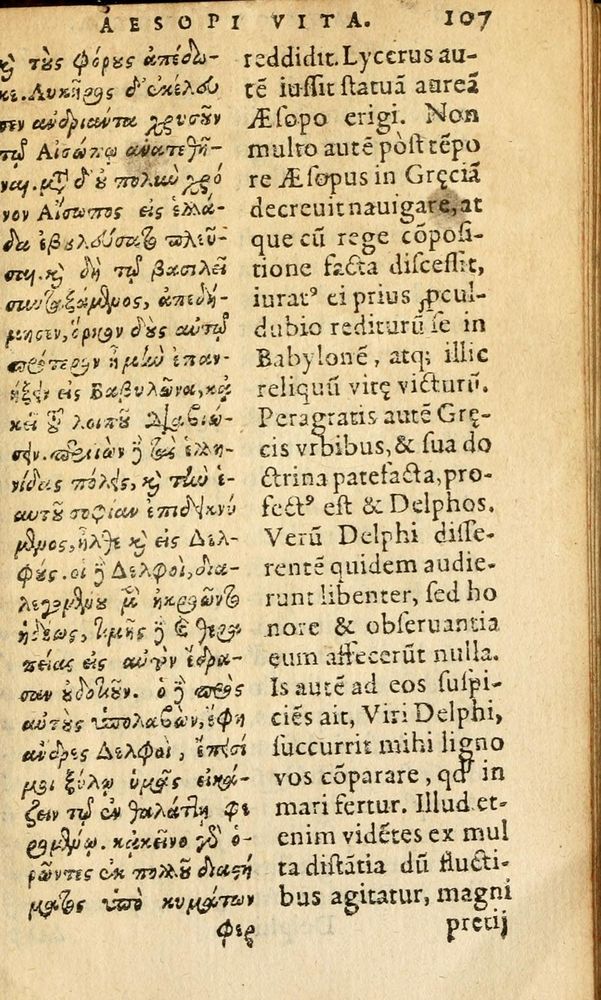 AESOPI VITA. 107
καὶ τοὺς φόρους ἀπέδω-
κε. Λυκῆρος δ' ἐκέλευ
σεν ἀνδριάντα χρυσοῦν
τῷ Αἰσώπῳ ἀνατεθῆ-
ναι. μετ' οὐ πολὺν χρό
νον Αἴσωπος εἰς ἑλλά-
δα ἐβουλεύσατο πλεῦ-
σαι. καὶ δὴ τῷ βασιλεῖ
συνταξάμενος, ἀπεδή-
μησεν, ὅρκον δοὺς αὐτῷ
πρότερον ἦ μὴν ἐπαν-
ήξειν εἰς Βαβυλῶνα, κἀ
κεῖ τοῦ λοιποῦ διαβιώ-
σειν. περιιὼν δὲ τὰς ἑλλη-
νίδας πόλεις, καὶ τὴν ἑ-
αυτοῦ σοφίαν ἐπιδεικνύ
μενος, ἦλθε καὶ εἰς Δελ-
φούς. οἱ δὲ Δελφοὶ, δια-
λεγομένου μὲν ἠκροῶντο
ἡδέως, τιμῆς δὲ καὶ θερα
πείας εἰς αὐτὸν ἔδρα-
σαν οὐδοτιοῦν. ὁ δὲ πρὸς
αὐτοὺς ὑπολαβὼν, ἔφη
ἄνδρες Δελφοὶ, ἔπεισί
μοι ξύλῳ ὑμᾶς εἰκά-
ζειν τῷ ἐν θαλάττῃ φε
ρομένῳ. κἀκεῖνο γὰρ ὁ-
ρῶντες ἐκ πολλοῦ διαστή
ματος ὑπὸ κυμάτων
φερ
reddidit. Lycerus au-
tē iussit statuā aureā
Æsopo erigi. Non
multo autē pòst tēpo
re Æsopus in Gręciā
decreuit nauigare, at
que cū rege cōposi-
tione facta discessit,
iuratꝰ ei prius ꝓcul-
dubio rediturū se in
Babylonē, atq; illic
reliquū vitę victurū.
Peragratis autē Grę-
cis vrbibus, & sua do
ctrina patefacta, pro-
fectꝰ est & Delphos.
Verū Delphi disse-
rentē quidem audie-
runt libenter, sed ho
nore & obseruantia
eum affecerūt nulla.
Is autē ad eos suspi-
ciēs ait, Viri Delphi,
succurrit mihi ligno
vos cōparare, qd' in
mari fertur. Illud et-
enim vidētes ex mul
ta distātia dū flucti-
bus agitatur, magni
pretij